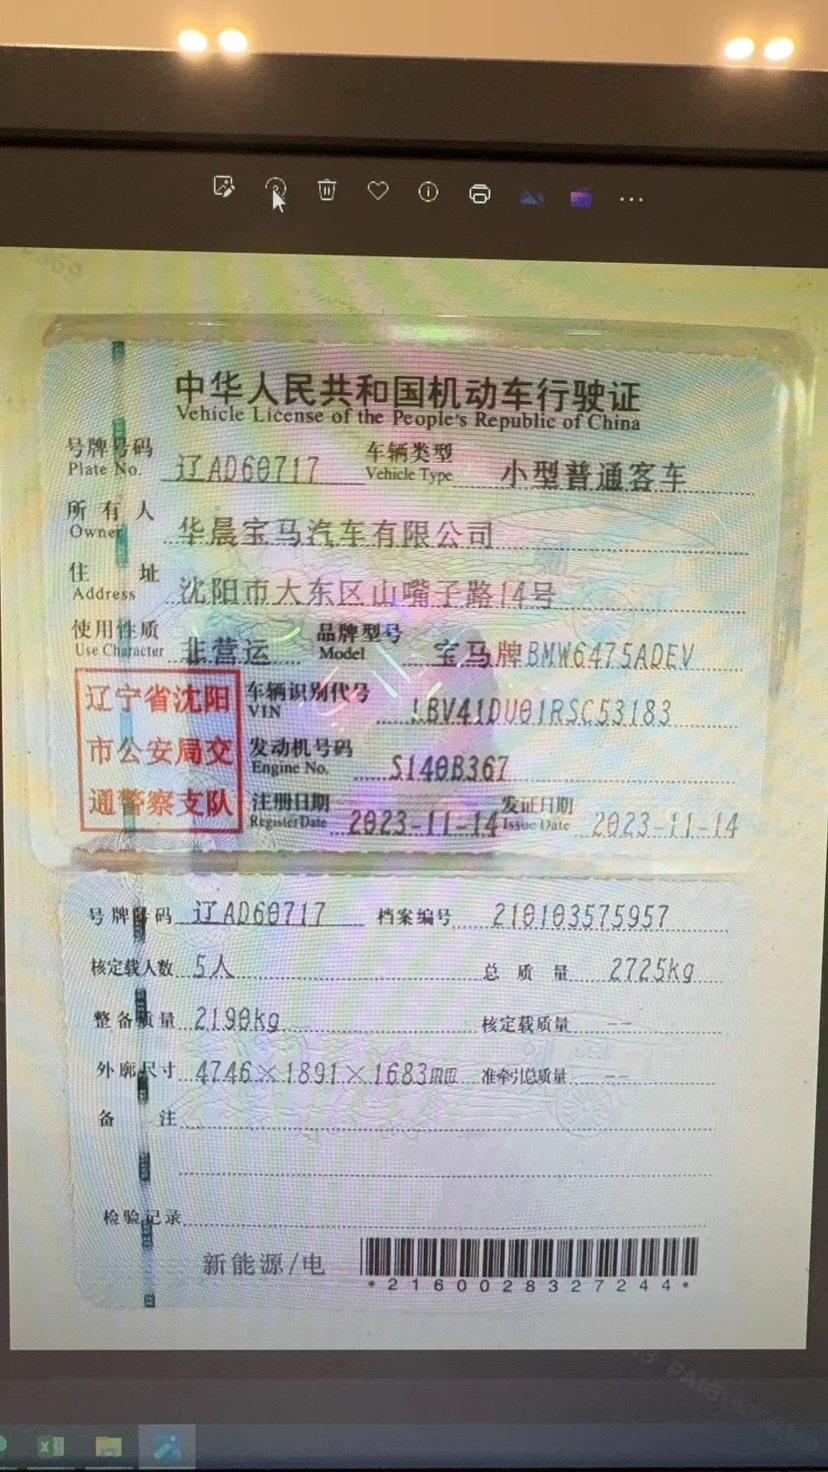 中华人民共和国机动车行驶证
Vehicle License of the People's Republic of China
号牌号码 辽AD60717 车辆类型 小型普通客车
Plate No. Vehicle Type
所有人 华晨宝马汽车有限公司
Owner
住址 沈阳市大东区山嘴子路14号
Address
使用性质 非营运 品牌型号 宝马牌BMW6475ADEV
Use Character Model
辽宁省沈阳
市公安局交
通警察支队
车辆识别代号 LBV41DU01RSC53183
VIN
发动机号码 S140B367
Engine No.
注册日期 2023-11-14 发证日期 2023-11-14
Register Date Issue Date
号牌号码 辽AD60717 档案编号 210103575957
核定载人数 5人 总质量 2725kg
整备质量 2190kg 核定载质量 --
外廓尺寸 4746×1891×1683mm 准牵引总质量 --
备注
检验记录
新能源/电
*2160028327244*